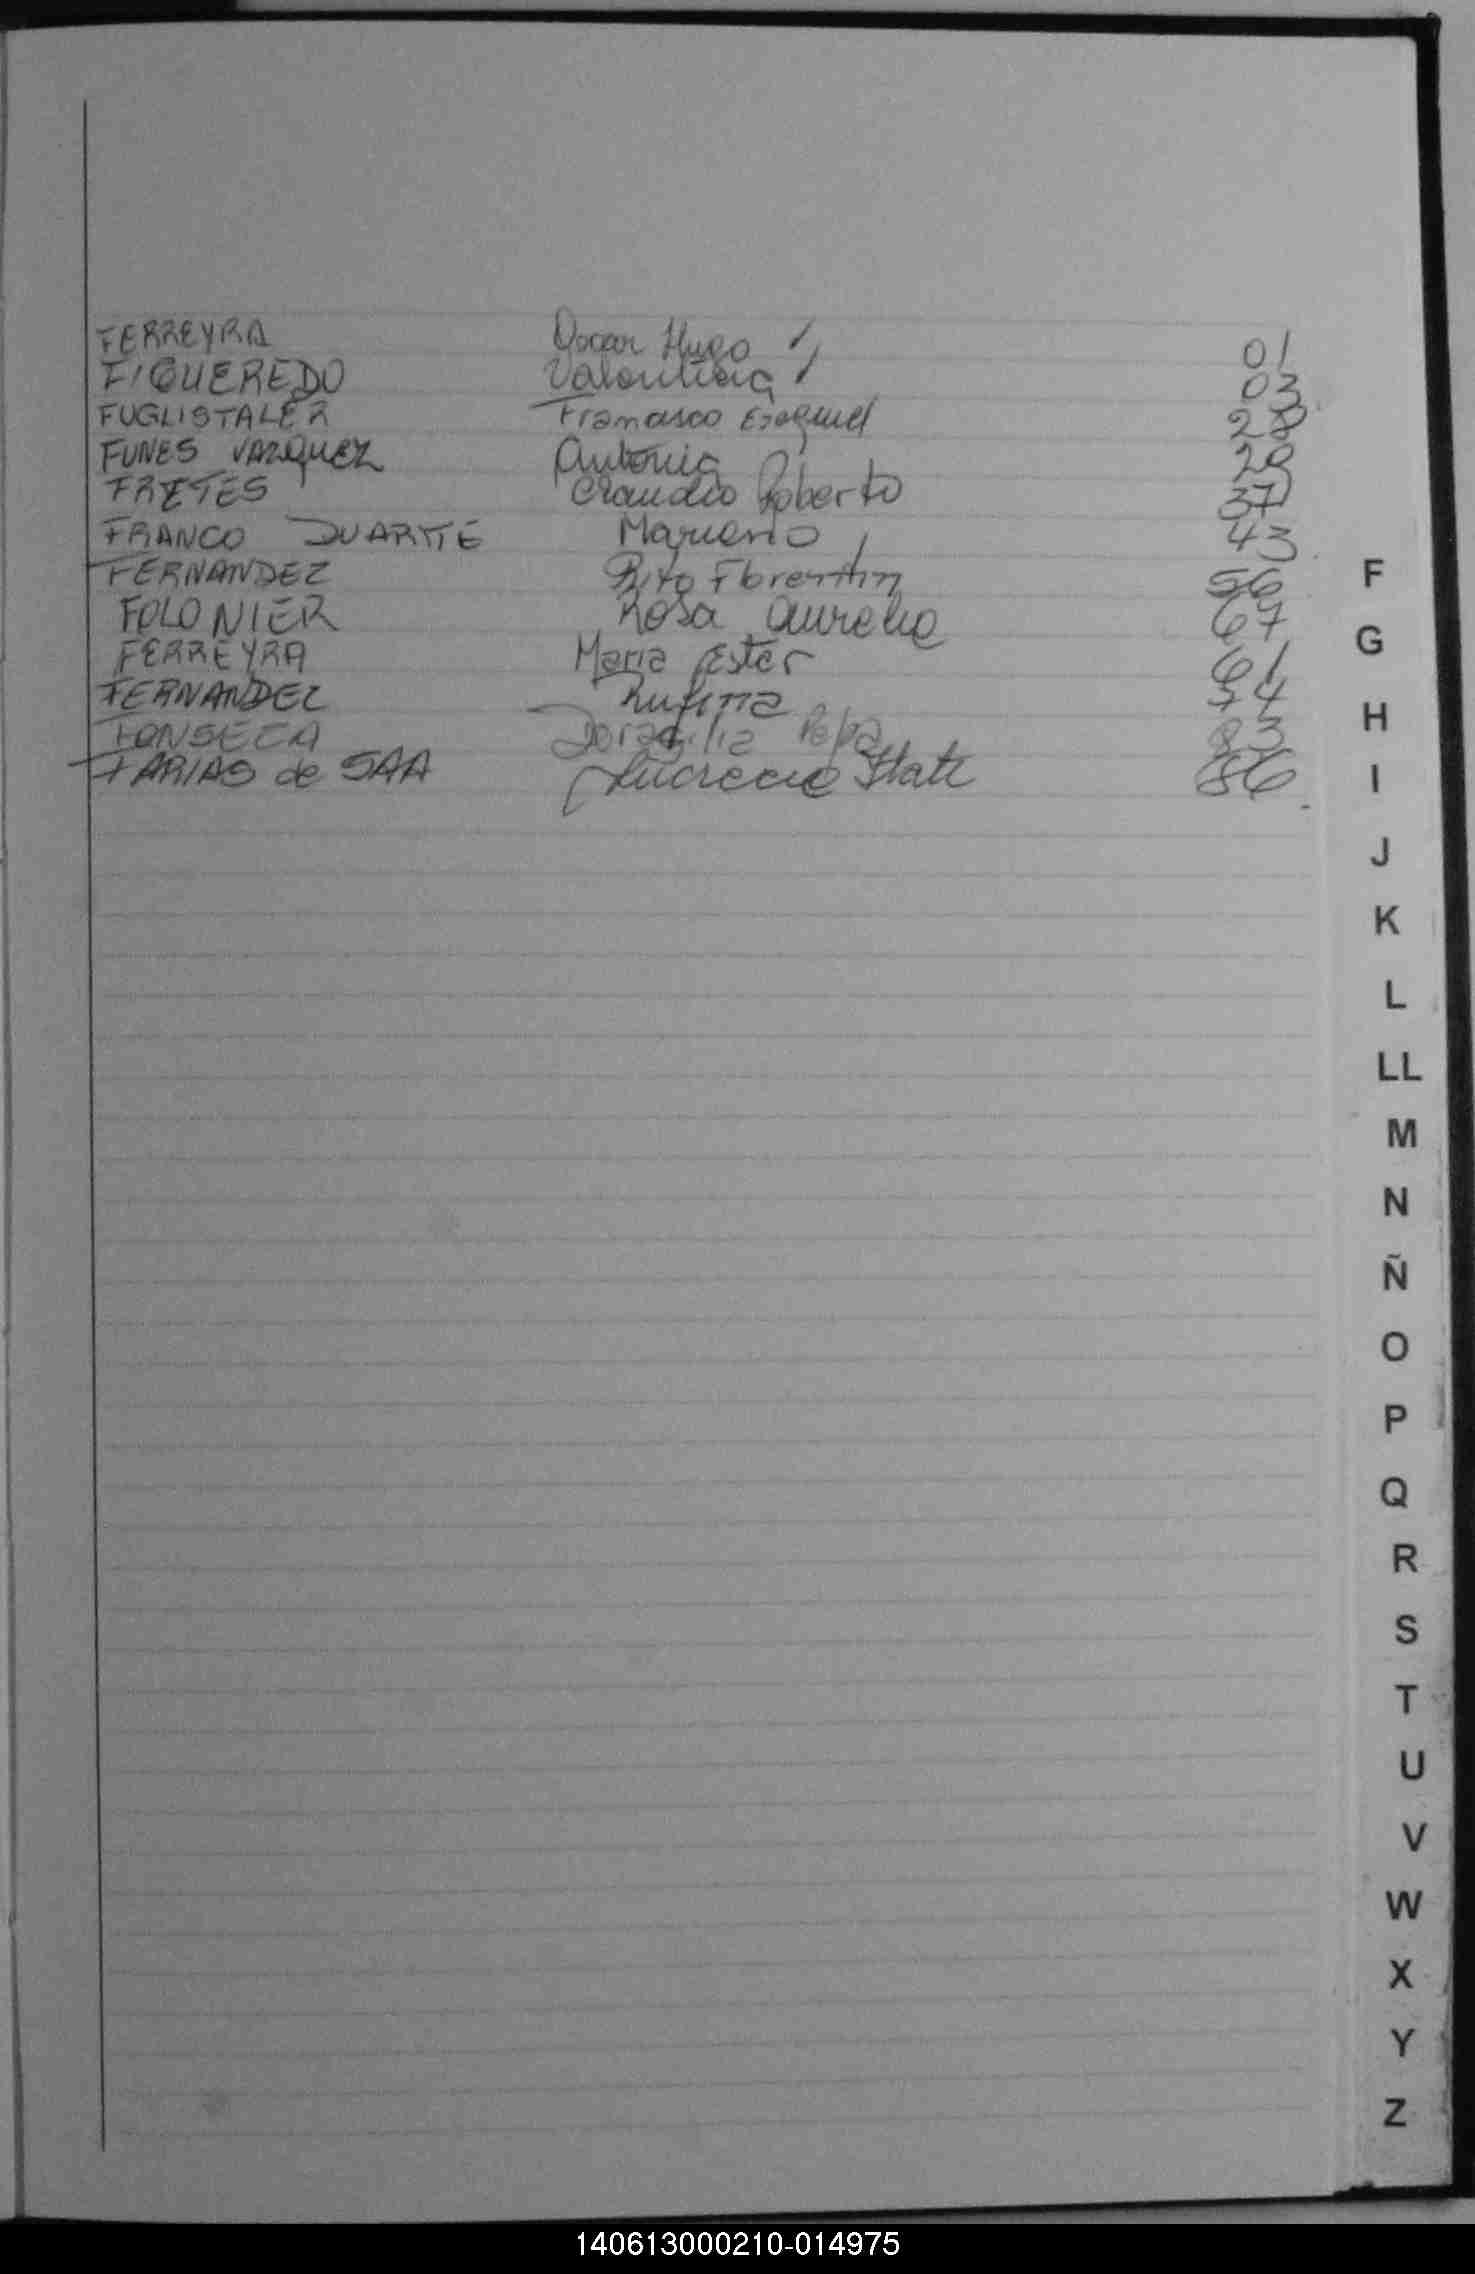 FERREYRA Oscar Hugo 01
FIGUEREDO Valentina 03
FUGLISTALER Francisco Ezequiel 28
FUNES VAZQUEZ Antonia 29
FRETES Claudio Roberto 37
FRANCO DUARTE Mariano 43
FERNANDEZ Rito Florentin 56
FOLONIER Rosa Aurelia 67
FERREYRA Maria Ester 61
FERNANDEZ Rufina 74
FONSECA Doralilia 83
FARIAS de SAA Lucrecia 86
F
G
H
I
J
K
L
LL
M
N
Ñ
O
P
Q
R
S
T
U
V
W
X
Y
Z
140613000210-014975